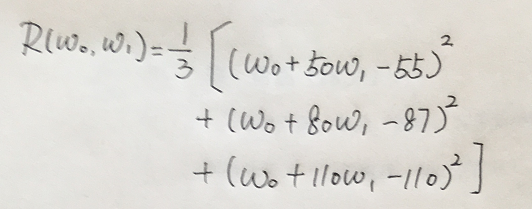 R(w₀, w₁) = 1/3 [(w₀ + 50w₁ - 55)²
+ (w₀ + 80w₁ - 87)²
+ (w₀ + 110w₁ - 110)²]